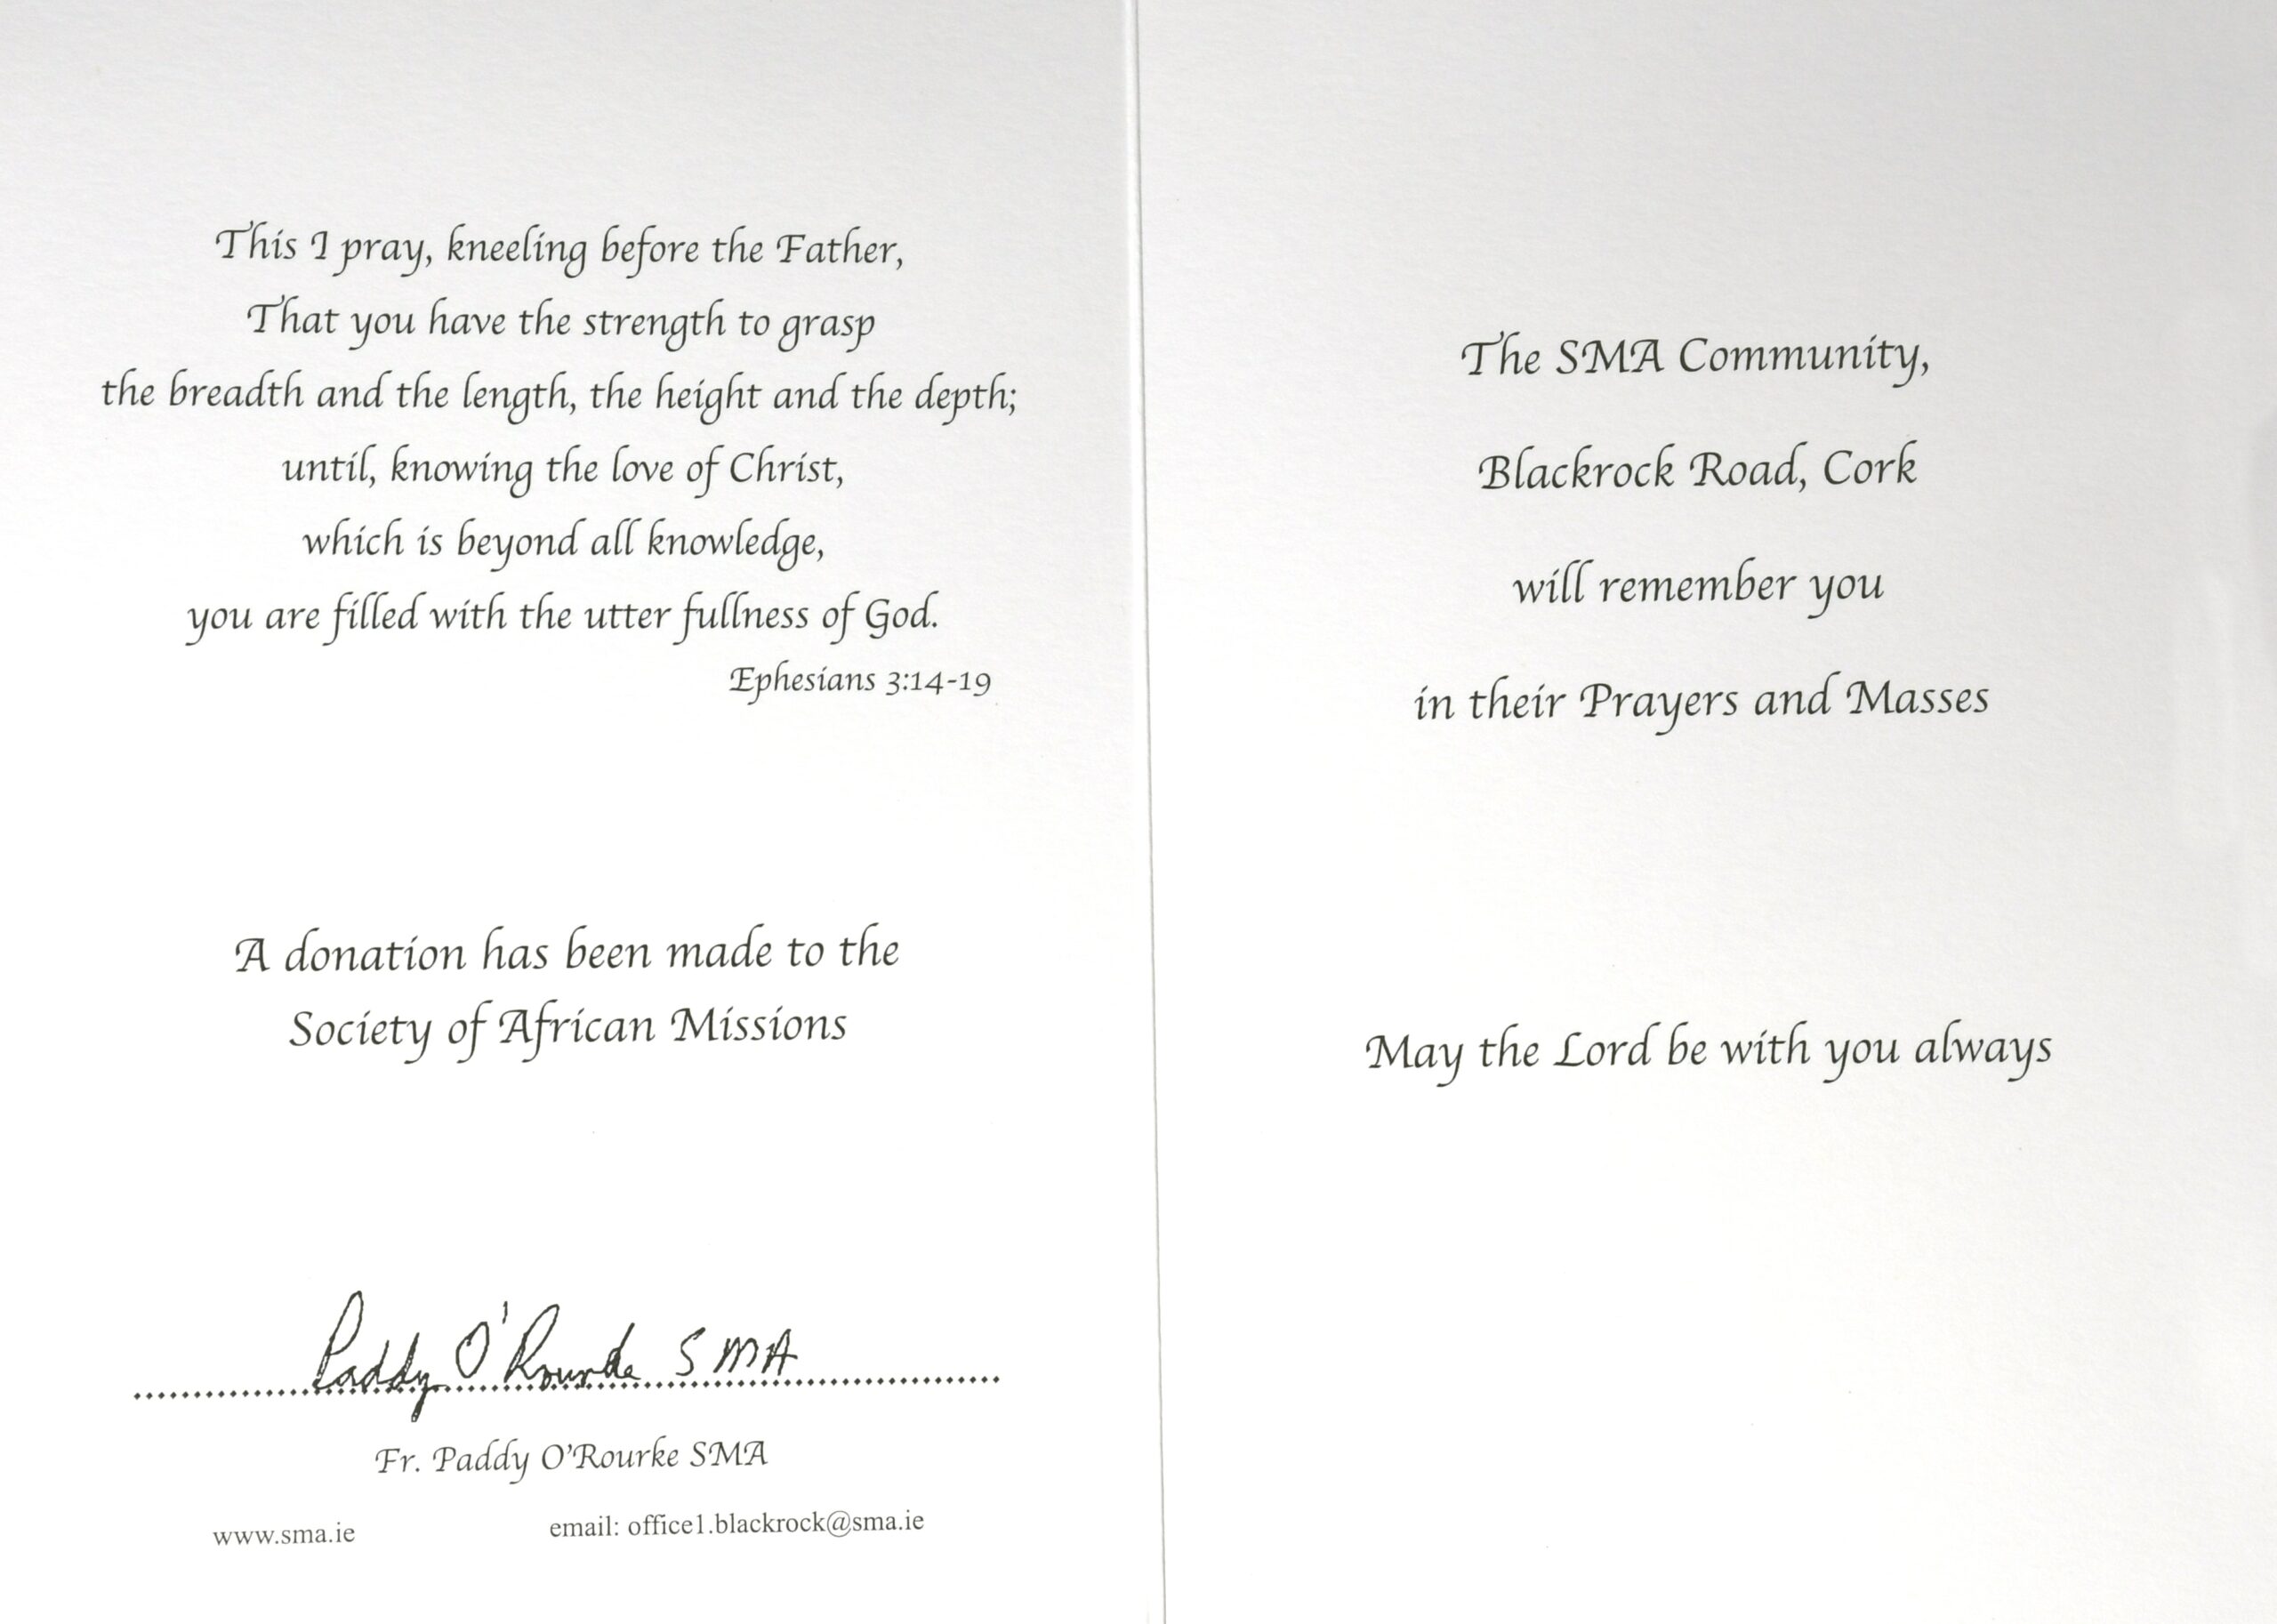 This I pray, kneeling before the Father,
That you have the strength to grasp
the breadth and the length, the height and the depth;
until, knowing the love of Christ,
which is beyond all knowledge,
you are filled with the utter fullness of God.
Ephesians 3:14-19
A donation has been made to the
Society of African Missions
Paddy O'Rourke SMA
Fr. Paddy O'Rourke SMA
www.sma.ie email: office1.blackrock@sma.ie
The SMA Community,
Blackrock Road, Cork
will remember you
in their Prayers and Masses
May the Lord be with you always